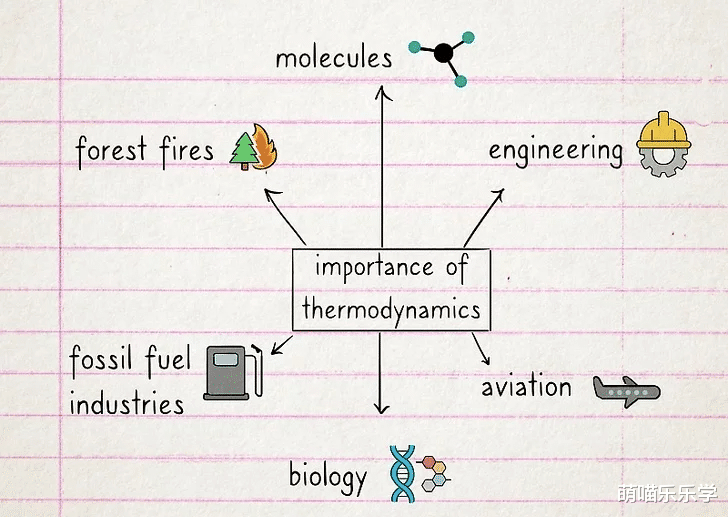 molecules
forest fires
engineering
importance of
thermodynamics
fossil fuel
industries
aviation
biology
萌喵乐乐学